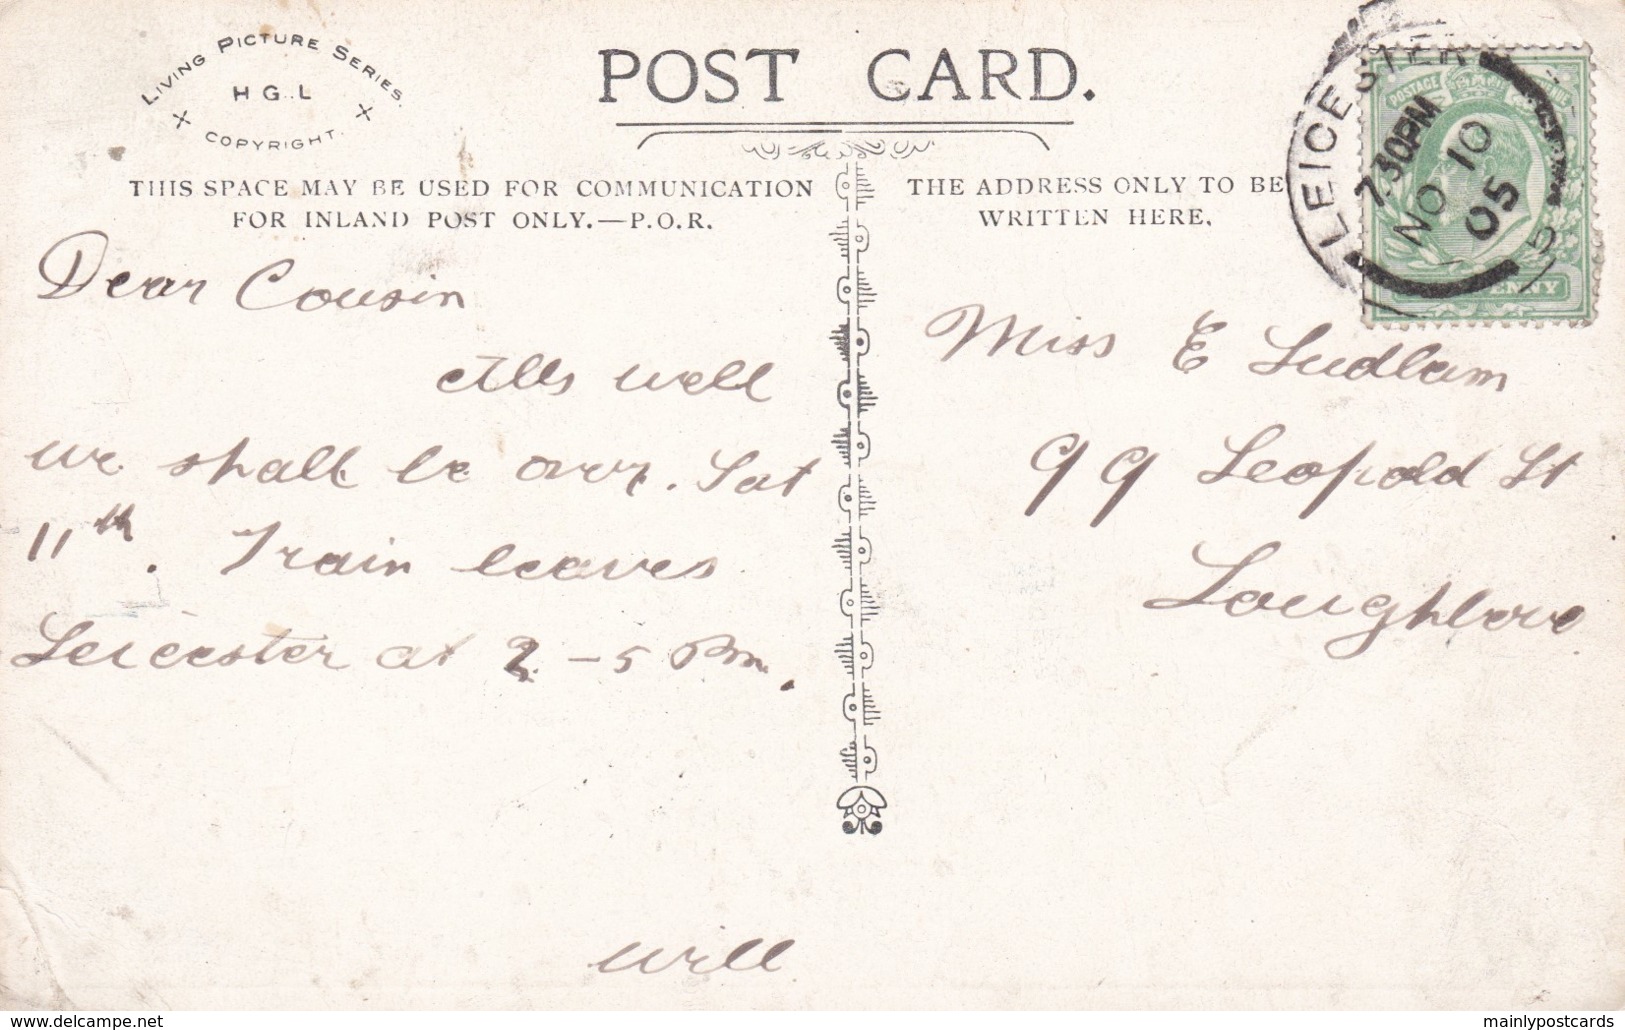 LIVING PICTURE SERIES.
H G. L
COPYRIGHT.
POST CARD.
THIS SPACE MAY BE USED FOR COMMUNICATION
FOR INLAND POST ONLY.—P.O.R.
Dear Cousin
Alls well
we shall be over. Sat
11th. Train leaves
Leicester at 2-5 Pm.
Will
THE ADDRESS ONLY TO BE
WRITTEN HERE.
Miss E Ludlam
99 Leopold St
Loughboro
LEICESTER
7.30PM
NO 10
05
POSTAGE
www.delcampe.net
mainlypostcards